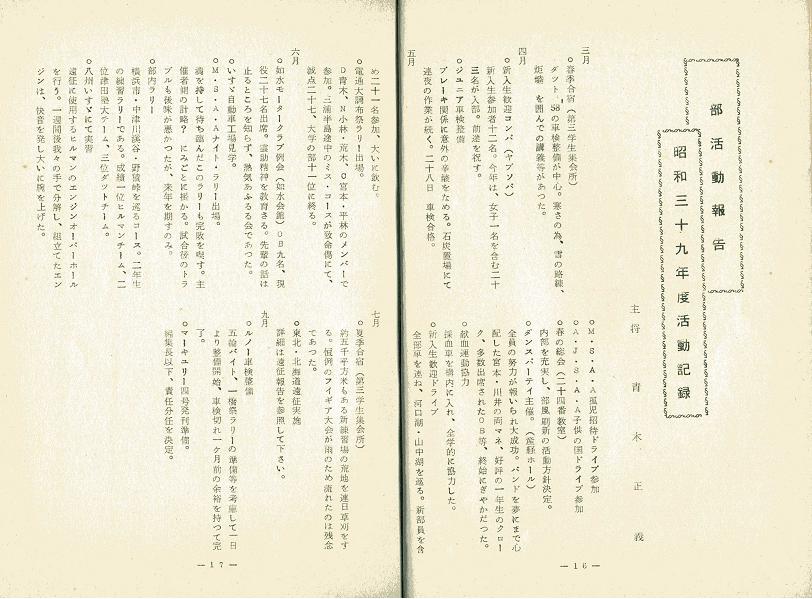 部活動報告
昭和三十九年度活動記録
主将 青木正義
三月
○春季合宿(第三学生集会所)
ダット、58の車検整備が中心。寒さの為、雪の路練、
炬燵を囲んでの講義等があつた。
四月
○新入生歓迎コンパ(ヤブソバ)
新入生参加者十二名。今年は、女子一名を含む二十
三名が入部。前途を祝す。
○ジュニア車検整備
ブレーキ関係に意外の辛酸をためる。石炭置場にて
連夜の作業が続く。二十八日 車検合格。
五月
○M・S・A・A孤児招待ドライブ参加
○A・J・S・A・A子供の国ドライブ参加
○春の総会(二十四番教室)
内部を充実し、部風刷新の活動方針決定。
○ダンスパーティ主催。(産経ホール)
全員の努力が報いられ大成功。バンドを夢にまで心
配した宮本・川井の両マネ、好評の一年生のクロー
ク、多数出席されたOB等、終始にぎやかだつた。
○献血運動協力
採血車を構内に入れ、全学的に協力した。
○新入生歓迎ドライブ
全部車を連ね、河口湖・山中湖を巡る。新部員を含
—16—
め二十一名参加、大いに飲む。
○電通大調布祭ラリー出場。
D青木、N小林・荒木、C宮本・平林のメンバーで
参加。三浦半島途中のミス・コースが致命傷にて、
減点二十七、大学の部十一位に終る。
六月
○如水モータークラブ例会(如水会館)OB九名、現
役二十七名出席。霊助精神を教育さる。先輩の話は
止るところを知らず、熱気あふるる会であつた。
○いすゞ自動車工場見学。
○M・S・A・Aナイト・ラリー出場。
満を持して待ち望んだこのラリーも完敗を喫す。主
催者側の計略? にみごとに掛かる。試合後のトラ
ブルも後味が悪かつたが、来年を期すのみ。
○部内ラリー
横浜市・中津川渓谷・野猿峠を巡るコース。二年生
の練習ラリーである。成績一位ヒルマンチーム、二
位津田塾大チーム、三位ダットチーム。
○八州いすゞにて実習
遠征に使用するヒルマンのエンジンオーバーホール
を行う。一週間後我々の手で分解し、組立てたエン
ジンは、快音を発し大いに腕を上げた。
七月
○夏季合宿(第三学生集会所)
約五千平方米もある新練習場の荒地を連日草刈をす
る。恒例のフイギア大会が雨のため流れたのは残念
であつた。
○東北・北海道遠征実施
詳細は遠征報告を参照して下さい。
九月
○ルノー車検整備
五輪バイト、一橋祭ラリーの準備等を考慮して一日
より整備開始、車検切れ一ケ月前の余裕を持つて完
了。
○マーキュリー四号発刊準備。
編集長以下、責任分任を決定。
—17—